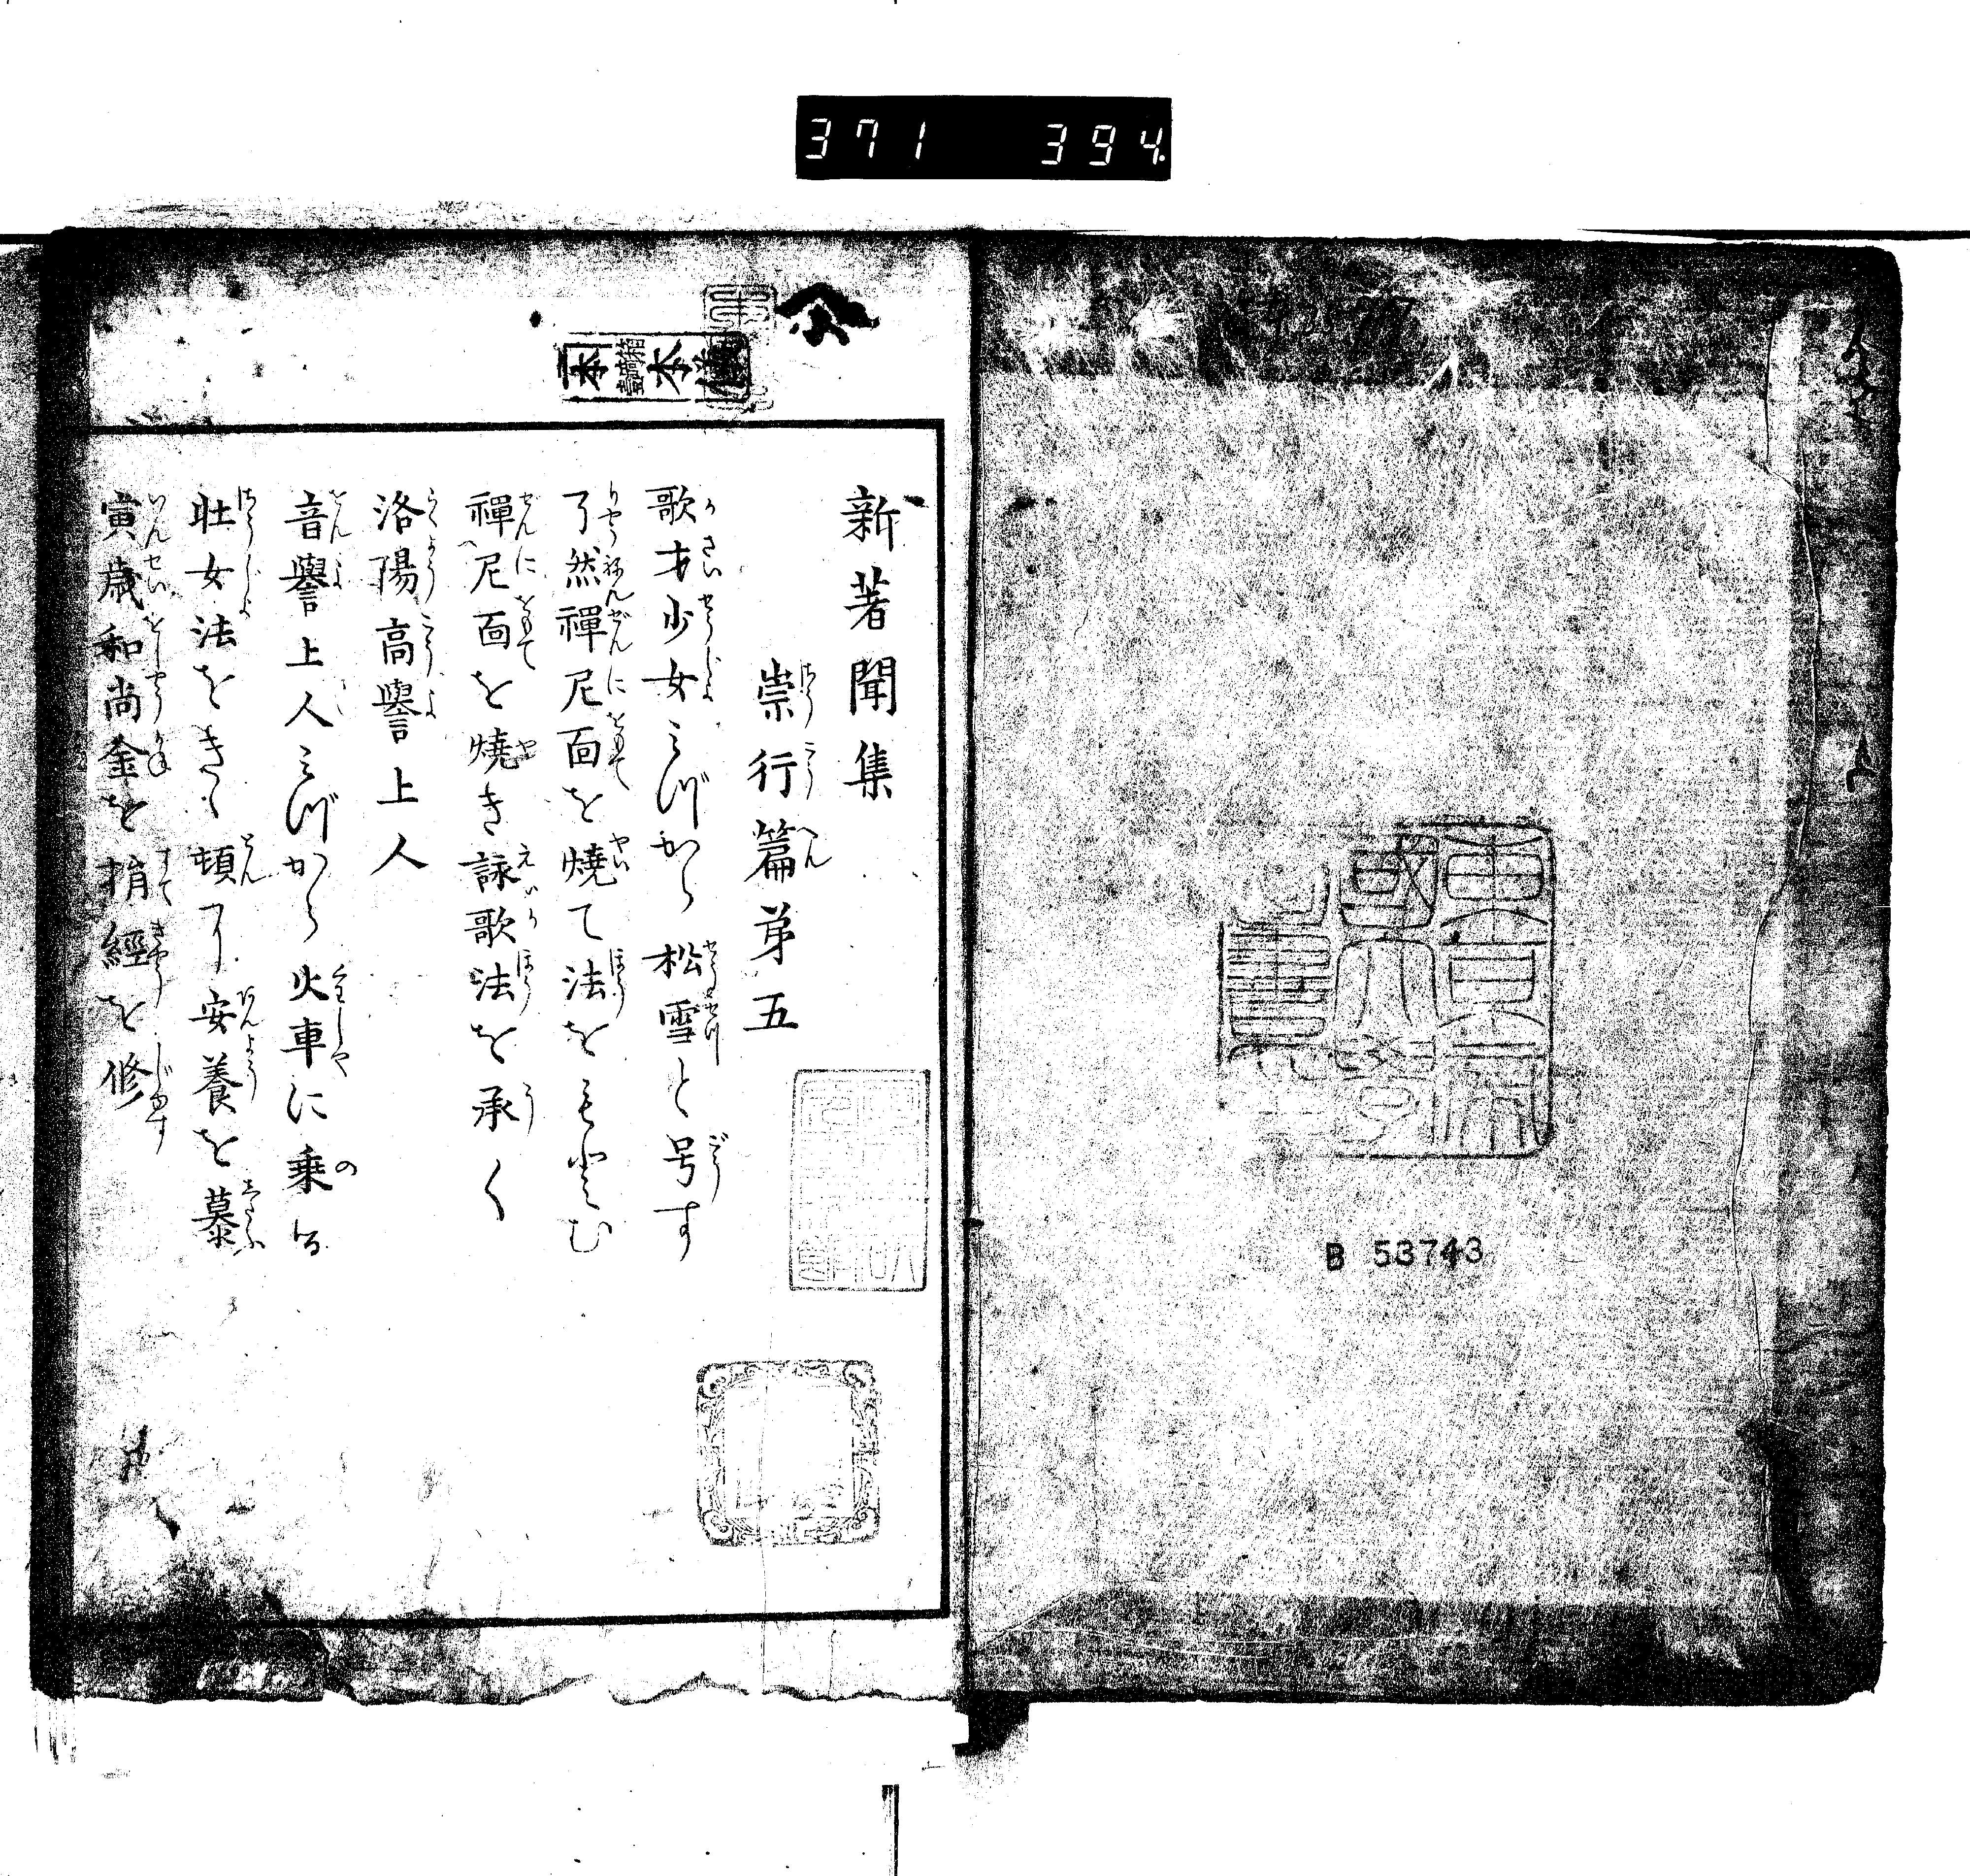 371 394
東京帝
國大學
圖書印
B 53743
新著聞集
崇行篇第五
歌才少女みづから松雪と号す
了然禪尼面を燒て法をもとむ
禪尼面を燒き詠歌法を承く
洛陽高譽上人
音譽上人みづから火車に乗る
壯女法をきゝ頓了安養を慕
寅歳和尚金を捐経を修